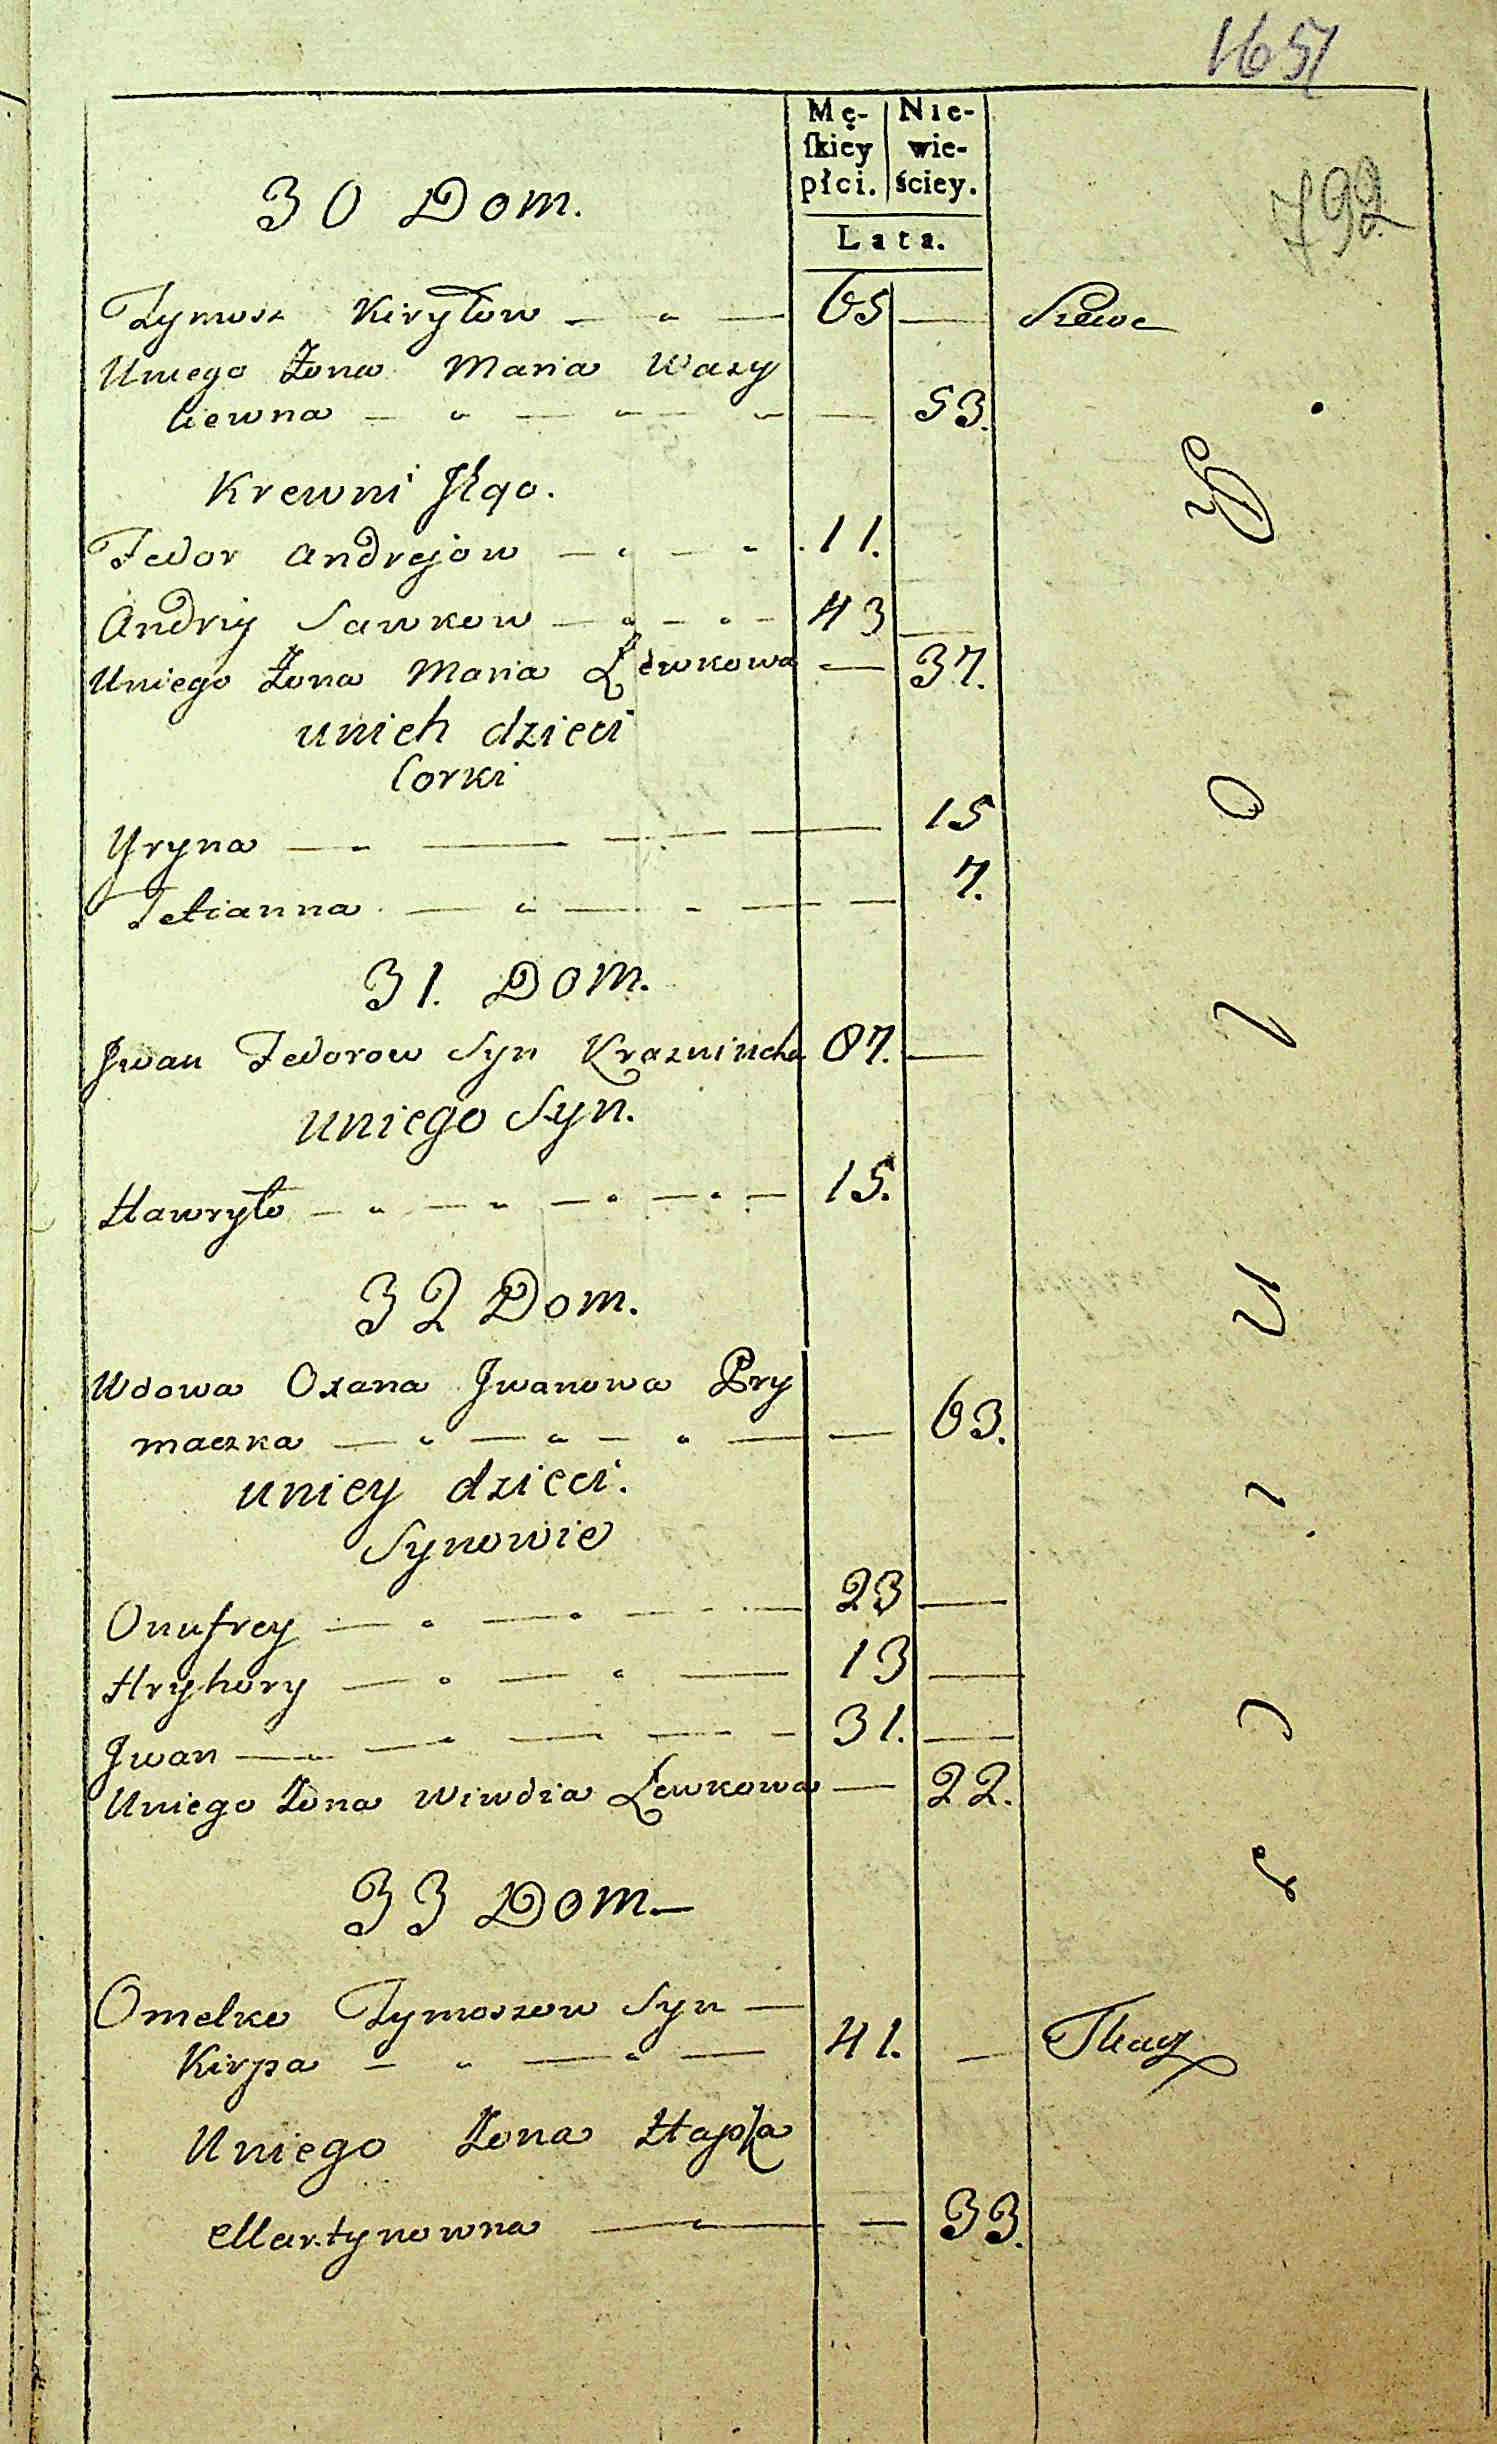 1651
Mę-
ſkiey
płci.
Nie-
wie-
ściey.
Lata.
792
30 Dom.
Tymosz Kiryłow 65 Szewc
Uniego Żona Maria Wasy
liewna 53.
Krewni Jego.
Fedor Andrejow 11.
Andriy Sawkow 43
Uniego Żona Maria Lewkowa 37.
unich dzieci
Corki
Yryna 15
Tetianna 7.
31. Dom.
Jwan Fedorow Syn 67.
uniego Syn.
Hawryło 15.
32 Dom.
Wdowa Oxana Jwanowa Pry
maczka 63.
uniey dzieci.
Synowie
Onufrey 23
Hryhory 13
Jwan 31.
Uniego Żona Wiwdia Lewkowa 22.
33 Dom.
Omelko Tymoszow Syn
Kirpa 41. Tkacz
Uniego Żona Hapka
Martynowna 33.